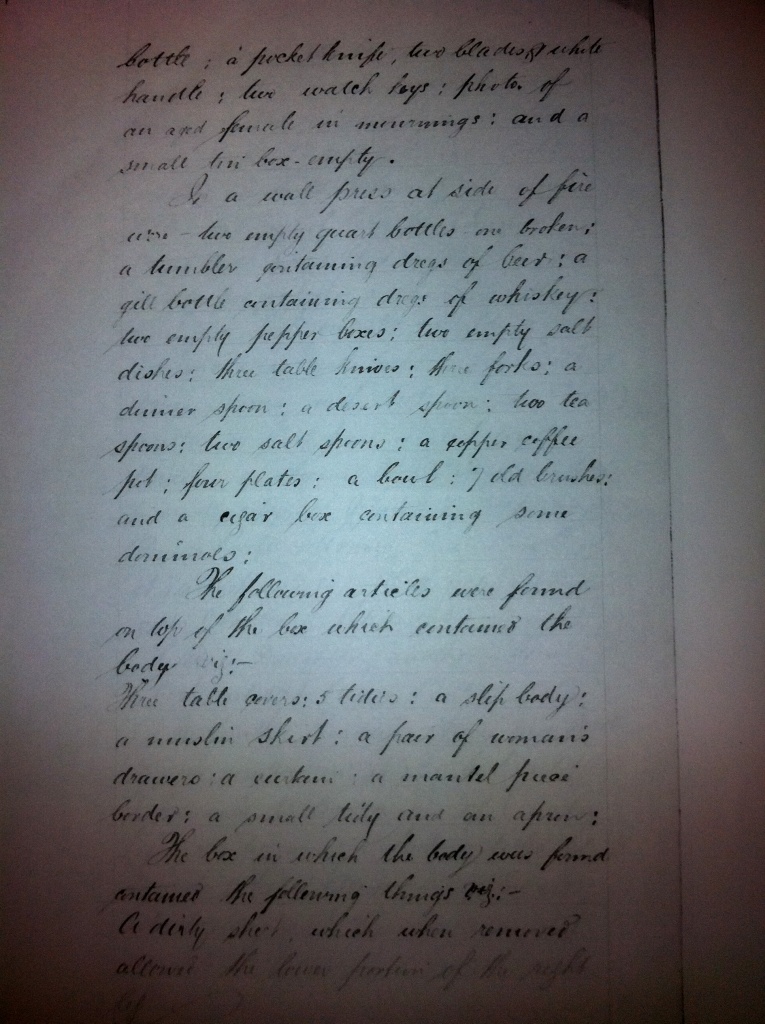 bottle; a pocket knife, two blades & white
handle; two watch keys; photo. of
an aged female in mournings; and a
small tin box-empty.
In a wall press at side of fire
were - two empty quart bottles one broken;
a tumbler containing dregs of beer; a
gill bottle containing dregs of whiskey;
two empty pepper boxes; two empty salt
dishes; three table knives; three forks; a
dinner spoon; a desert spoon; two tea
spoons; two salt spoons; a copper coffee
pot; four plates; a bowl; 7 old brushes;
and a cigar box containing some
dominoes;
The following articles were found
on top of the box which contained the
body viz:-
Three table covers; 5 tidies; a slip body;
a muslin skirt; a pair of woman's
drawers; a curtain; a mantel piece
border; a small tidy and an apron;
The box in which the body was found
contained the following things viz:-
A dirty sheet, which when removed
allowed the lower portion of the right
leg